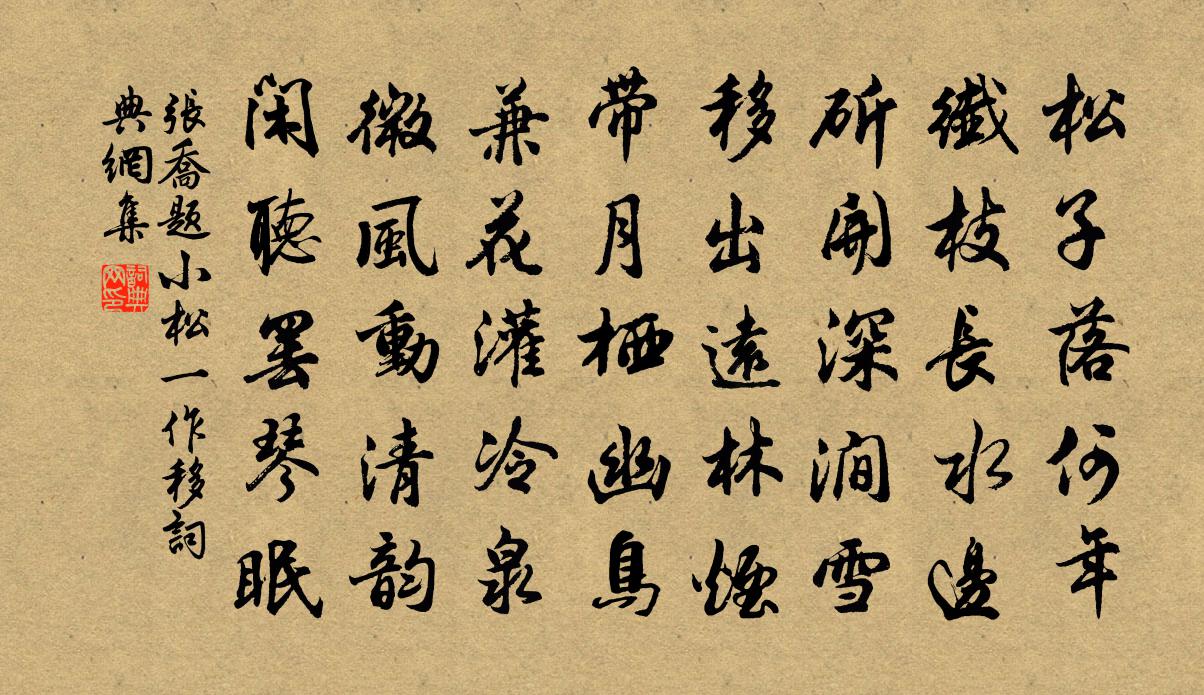 松子落何年
纖枝長水邊
斫開深澗雪
移出遠林煙
帶月栖幽鳥
兼花灌冷泉
微風動清韵
閑聽罢琴眠
張喬題小松一作移詞
典網集
詞典
网印